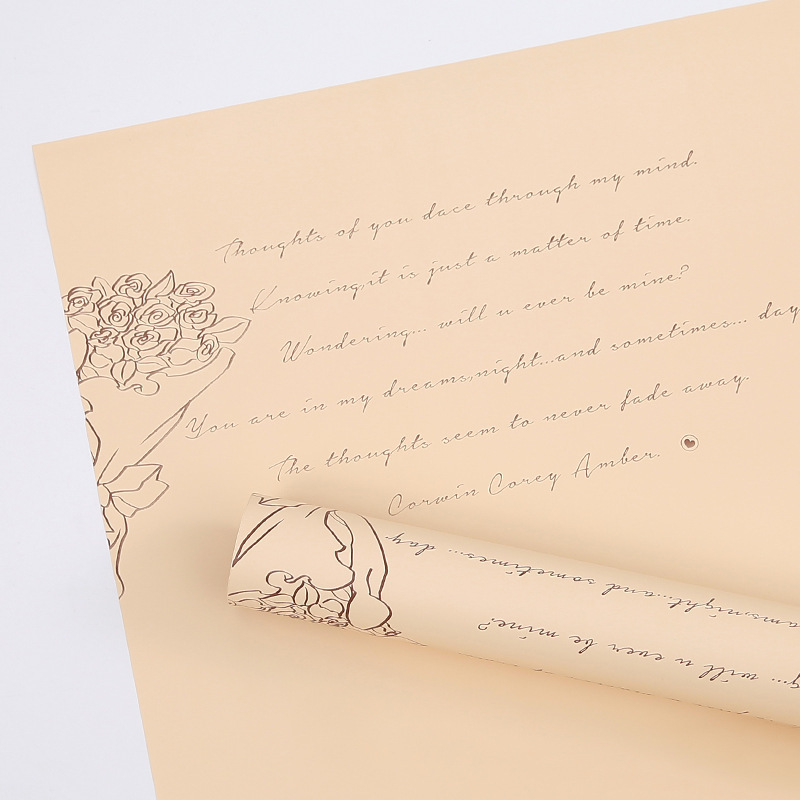 Thoughts of you dace through my mind.
Knowing,it is just a matter of time.
Wondering... will u ever be mine?
You are in my dreams,night...and sometimes... day
The thoughts seem to never fade away.
Corwin Corey Amber.
ams,night...and sometimes... day
... will u ever be mine?